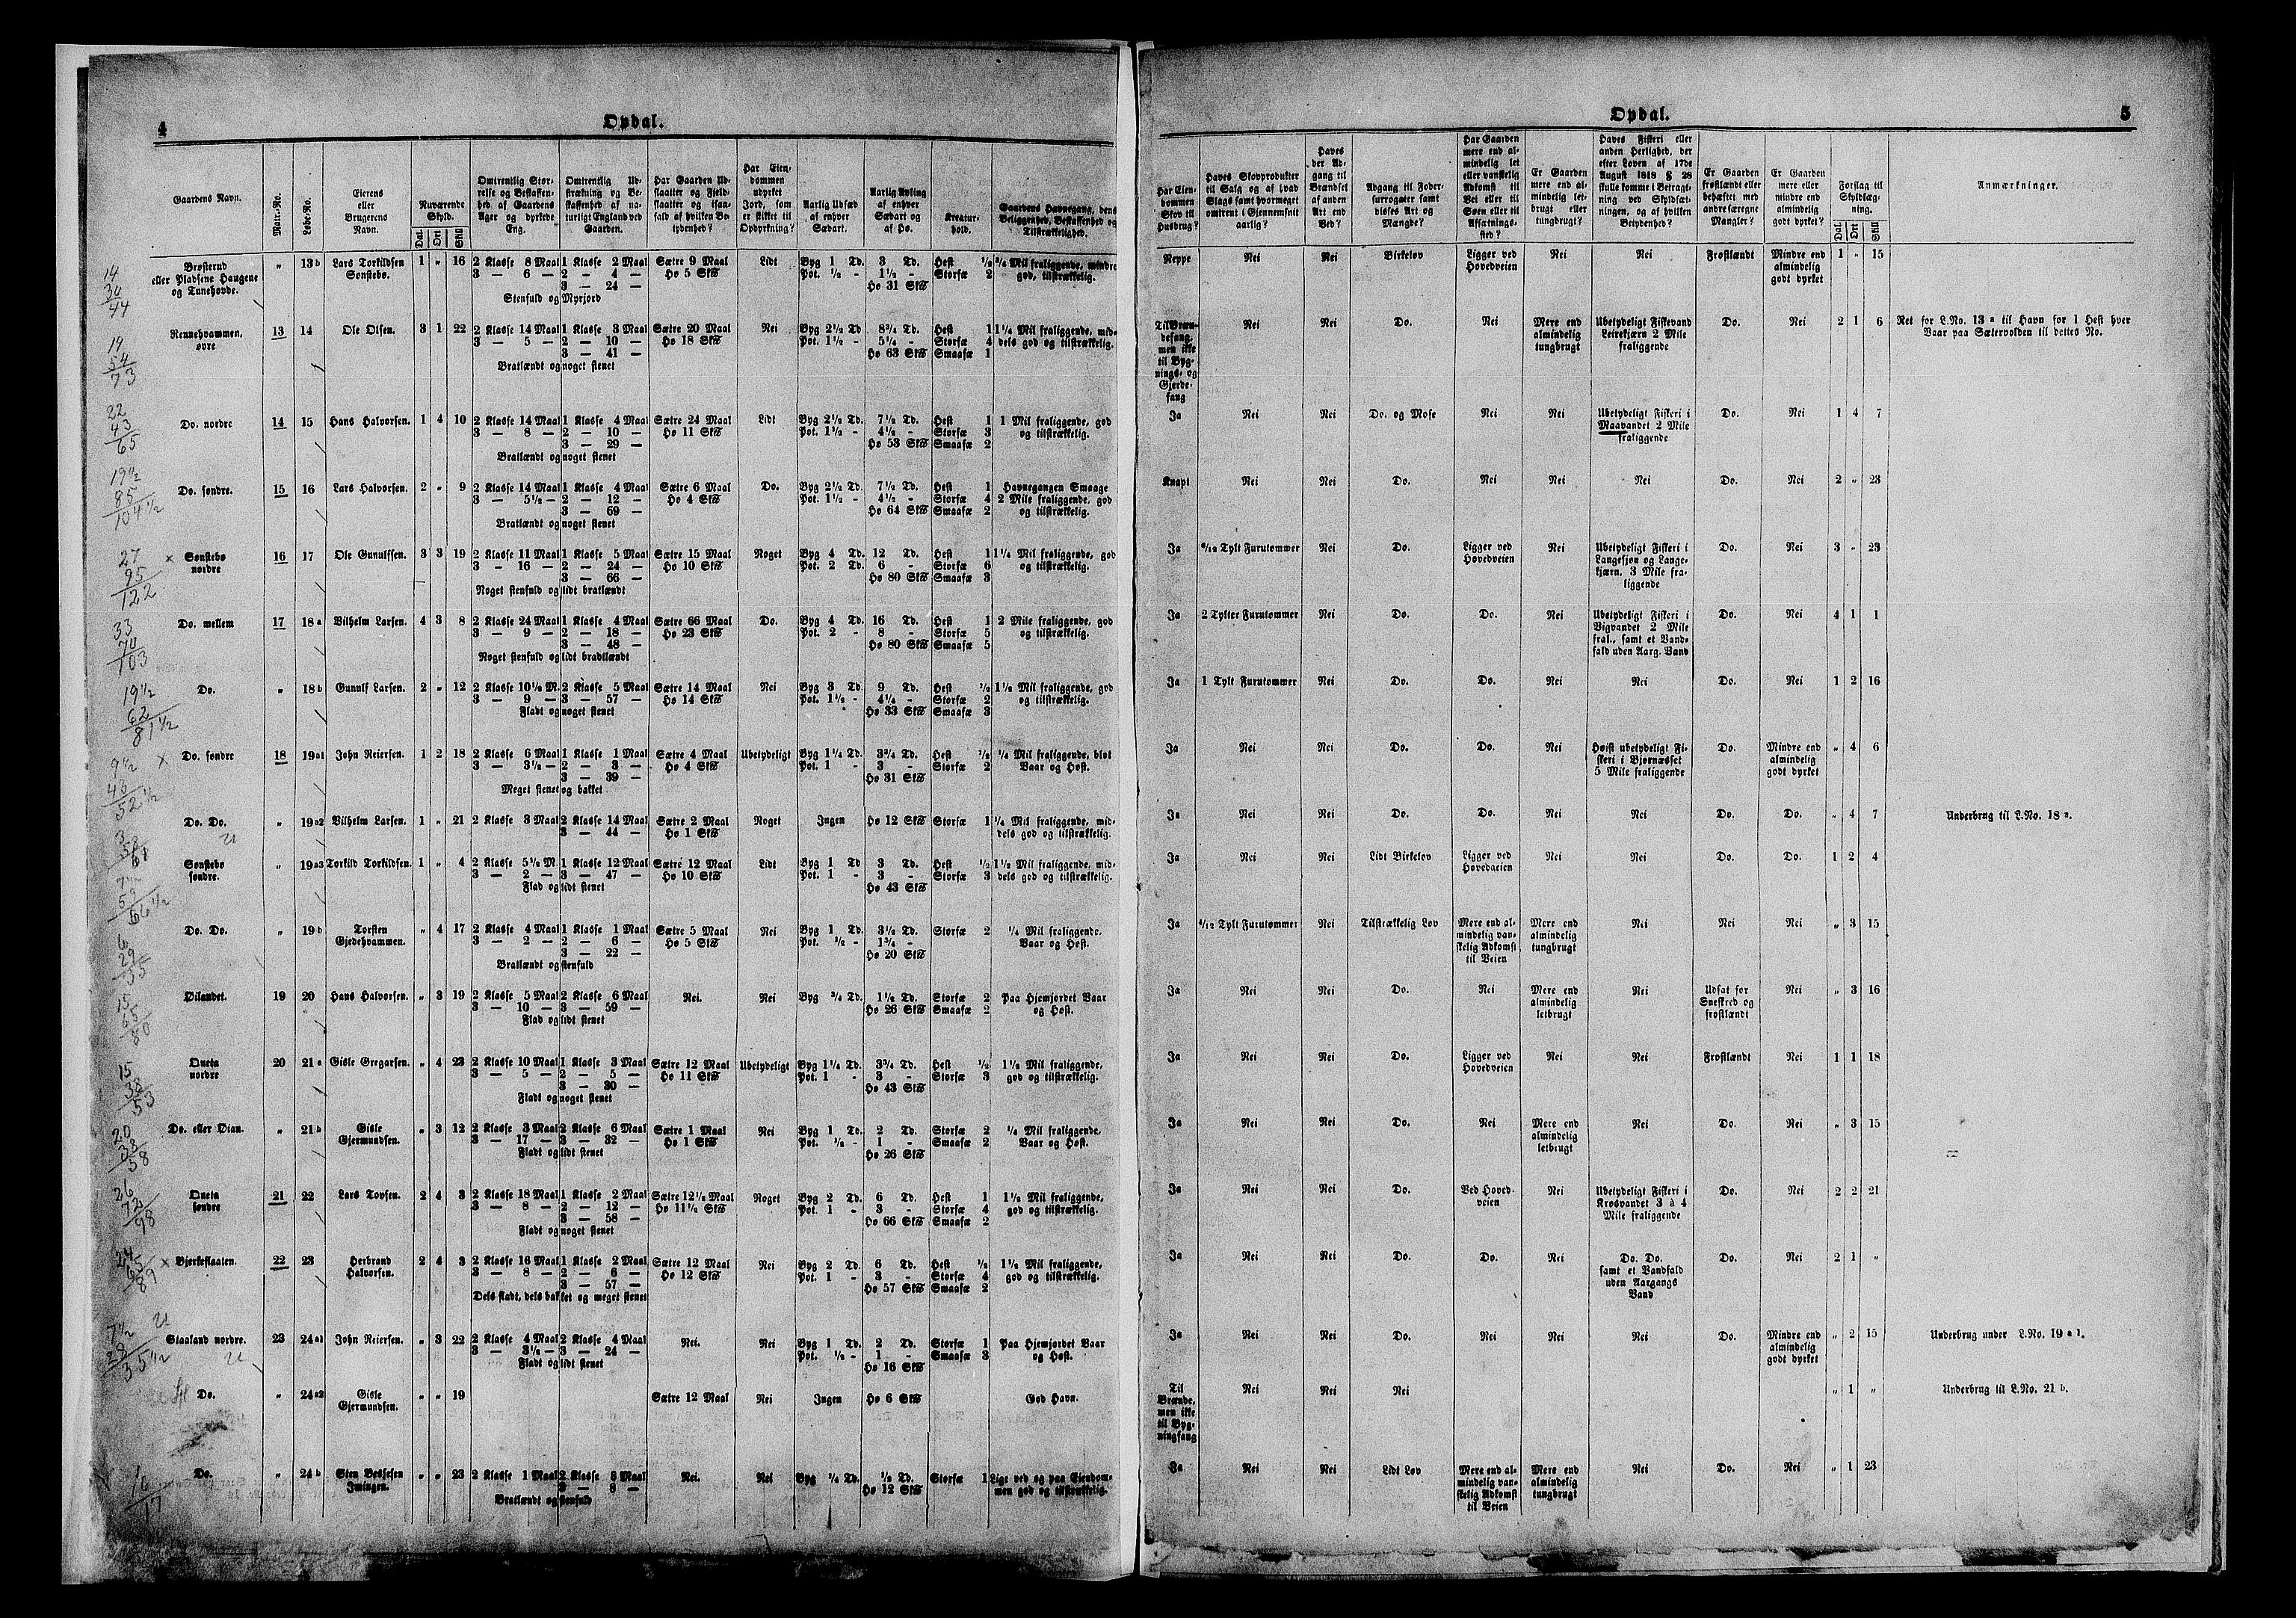 4
Opdal.
Gaardens Navn. Matr.-No. Løbe-No. Eierens eller Brugerens Navn. Nuværende Skyld. Dal. Ort Skill Omtrentlig Størrelse og Beskaffenhed af Gaardens Ager og dyrkede Eng. Omtrentlig Udstrækning og Beskaffenhed af naturligt England ved Gaarden. Har Gaarden Udslaatter og Fjeldslaatter og isaafald af hvilken Betydenhed? Har Eiendommen udyrket Jord, som er skikket til Opdyrkning? Aarlig Udsæd af enhver Sædart. Aarlig Avling af enhver Sædart og af Hø. Kreaturhold. Gaardens Havnegang, dens Beliggenhed, Beskaffenhed og Tilstrækkelighed.
Brøsterud 〃 13b Lars Torkildsen 1 〃 16 2 Klasse 8 Maal 1 Klasse 2 Maal Sætre 9 Maal Lidt Byg 1 Td. 3 Td. Hest 1/2 3/4 Mil fraliggende, mindre
eller Pladsene Haugene Sønstebø. 3 — 6 — 2 — 4 — Hø 5 Sk℔ Pot. 1/2 - 1 1/2 - Storfæ 2 god, tilstrækkelig.
og Tunehovde. 3 — 24 — Hø 31 Sk℔
Stenfuld og Myrjord
Rennehvammen, 13 14 Ole Olsen. 3 1 22 2 Klasse 14 Maal 1 Klasse 3 Maal Sætre 20 Maal Nei Byg 2 1/2 Td 8 3/4 Td. Hest 1 1 1/4 Mil fraliggende, mid-
øvre 3 — 5 — 2 — 10 — Hø 18 Sk℔ Pot. 1 1/2 - 5 1/4 - Storfæ 4 dels god og tilstrækkelig.
3 — 41 — Hø 63 Sk℔ Smaafæ 1
Bratlændt og noget stenet
Do. nordre 14 15 Hans Halvorsen. 1 4 10 2 Klasse 14 Maal 1 Klasse 4 Maal Sætre 24 Maal Lidt Byg 2 1/2 Td. 7 1/2 Td. Hest 1 1 Mil fraliggende, god
3 — 8 — 2 — 10 — Hø 11 Sk℔ Pot. 1 1/2 - 4 1/2 - Storfæ 3 og tilstrækkelig.
3 — 29 — Hø 53 Sk℔ Smaafæ 2
Bratlændt og noget stenet
Do. søndre. 15 16 Lars Halvorsen. 2 〃 9 2 Klasse 14 Maal 1 Klasse 4 Maal Sætre 6 Maal Do. Byg 2 1/2 Td. 7 1/2 Td. Hest 1 Havnegangen Smaage
3 — 5 1/2 — 2 — 12 — Hø 4 Sk℔ Pot. 1 1/2 - 4 1/2 - Storfæ 4 2 Mile fraliggende, god
3 — 69 — Hø 64 Sk℔ Smaafæ 2 og tilstrækkelig.
Bratlændt og noget stenet
× Sønstebø 16 17 Ole Gunulfsen. 3 3 19 2 Klasse 11 Maal 1 Klasse 5 Maal Sætre 15 Maal Noget Byg 4 Td. 12 Td. Hest 1 1 1/4 Mil fraliggende, god
nordre 3 - 16 — 2 — 24 — Hø 10 Sk℔ Pot. 2 Td. 6 - Storfæ 6 og tilstrækkelig.
3 — 66 — Hø 80 Sk℔ Smaafæ 3
Noget stenfuld og lidt bratlændt
Do. mellem 17 18a Vilhelm Larsen. 4 3 8 2 Klasse 24 Maal 1 Klasse 4 Maal Sætre 66 Maal Do. Byg 4 Td. 16 Td. Hest 1 2 Mile fraliggende, god
3 — 9 — 2 — 18 — Hø 23 Sk℔ Pot. 2 - 8 - Storfæ 5 og tilstrækkelig.
3 — 48 — Hø 80 Sk℔ Smaafæ 5
Noget stenfuld og lidt bradtlændt
Do. 〃 18b Gunulf Larsen. 2 〃 12 2 Klasse 10 1/2 M. 2 Klasse 5 Maal Sætre 14 Maal Nei Byg 3 Td. 9 Td. Hest 1/2 1 1/2 Mil fraliggende, god
3 — 9 — 3 — 57 — Hø 14 Sk℔ Pot. 1 1/2 - 4 1/4 - Storfæ 2 og tilstrækkelig.
Fladt og noget stenet Hø 33 Sk℔ Smaafæ 3
× Do. søndre 18 19a1 John Reiersen. 1 2 18 2 Klasse 6 Maal 1 Klasse 1 Maal Sætre 4 Maal Ubetydeligt Byg 1 1/4 Td. 3 3/4 Td. Hest 1/2 1/4 Mil fraliggende, blot
3 — 3 1/2 — 2 — 3 — Hø 4 Sk℔ Pot. 1 - 3 - Storfæ 2 Vaar og Høst.
3 — 39 — Hø 31 Sk℔
Meget stenet og bakket
Do. Do. 〃 19a2 Vilhelm Larsen. 1 〃 21 2 Klasse 3 Maal 2 Klasse 14 Maal Sætre 2 Maal Noget Ingen Hø 12 Sk℔ Storfæ 1 1/4 Mil fraliggende, mid-
3 — 44 — Hø 1 Sk℔ dels god og tilstrækkelig.
Sønstebø 〃 19a3 Torkild Torkildsen. 1 〃 4 2 Klasse 5 1/2 M. 1 Klasse 12 Maal Sætre 12 Maal Lidt Byg 1 Td 3 Td. Hest 1/2 1 1/2 Mil fraliggende, mid-
søndre. 3 — 2 — 3 — 47 — Hø 10 Sk℔ Pot. 1 - 3 - Storfæ 3 dels god og tilstrækkelig.
Flad og lidt stenet Hø 43 Sk℔
Do. Do. 〃 19b Torsten 〃 4 17 2 Klasse 4 Maal 1 Klasse 1 Maal Sætre 5 Maal Nei Byg 1 Td. 3 1/2 Td. Storfæ 2 1/4 Mil fraliggende.
Gjedehvammen. 3 — 2 — 2 — 6 — Hø 5 Sk℔ Pot. 1/2 - 1 3/4 - Vaar og Høst.
3 — 22 — Hø 20 Sk℔
Bratlændt og stenfuld
Øilandet. 19 20 Hans Halvorsen. 〃 3 19 2 Klasse 5 Maal 2 Klasse 6 Maal Nei. Nei Byg 3/4 Td. 1 1/2 Td. Storfæ 2 Paa Hjemjordet Vaar
3 — 10 — 3 — 59 — Hø 26 Sk℔ Smaafæ 2 og Høst.
Flad og lidt stenet
Oneta 20 21a Gisle Gregarsen. 〃 4 23 2 Klasse 10 Maal 1 Klasse 3 Maal Sætre 12 Maal Ubetydeligt Byg 1 1/4 Td. 3 3/4 Td. Hest 1/2 1 1/2 Mil fraliggende,
nordre 3 — 5 — 2 — 5 — Hø 11 Sk℔ Pot. 1 - 3 - Storfæ 3 god og tilstrækkelig.
3 — 30 — Hø 43 Sk℔
Fladt og noget stenet
Do. eller Øian. 〃 21b Gisle 〃 3 12 2 Klasse 3 Maal 2 Klasse 6 Maal Sætre 1 Maal Nei Byg 1 Td. 2 Td. Storfæ 2 1/4 Mil fraliggende,
Gjermundsen. 3 — 17 — 3 — 32 — Hø 1 Sk℔ Pot. 1/2 - 1 - Smaafæ 2 Vaar og Høst.
Fladt og lidt stenet Hø 26 Sk℔
Oneta 21 22 Lars Tovsen. 2 4 3 2 Klasse 18 Maal 1 Klasse 2 Maal Sætre 12 1/2 Maal Noget Byg 2 Td. 6 Td. Hest 1 1 1/2 Mil fraliggende,
søndre 3 — 8 — 2 — 12 — Hø 11 1/2 Sk℔ Pot. 1 - 3 - Storfæ 4 god og tilstrækkelig.
3 — 58 — Hø 66 Sk℔ Smaafæ 2
Fladt og noget stenet
× Bjerkeflaaten. 22 23 Herbrand 2 4 3 2 Klasse 16 Maal 1 Klasse 2 Maal Sætre 12 Maal Nei Byg 2 Td. 6 Td. Hest 1/2 1 1/2 Mil fraliggende,
Halvorsen. 3 — 8 — 2 — 6 — Hø 12 Sk℔ Pot. 1 - 3 - Storfæ 4 god og tilstrækkelig.
3 — 57 — Hø 57 Sk℔ Smaafæ 2
Dels fladt, dels bakket og meget stenet
Staaland nordre. 23 24a1 John Reiersen. 〃 3 22 2 Klasse 4 Maal 2 Klasse 4 Maal Nei. Nei Byg 1 Td. 2 Td. Storfæ 1 Paa Hjemjordet Vaar
3 — 3 1/2 — 3 — 24 — Pot. 1/2 - 1 - Smaafæ 3 og Høst.
Fladt og lidt stenet Hø 16 Sk℔
Do. 〃 24a2 Gisle 〃 〃 19 Sætre 12 Maal Nei Ingen Hø 6 Sk℔ God Havn.
Gjermundsen.
Do. 〃 24b Sten Bessesen 〃 〃 23 2 Klasse 1 Maal 2 Klasse 8 Maal Nei. Nei Byg 1/4 Td. 1/2 Td. Storfæ 1 Lige ved og paa Eiendom-
Imingen. 3 — 8 — Hø 12 Sk℔ men god og tilstrækkelig.
Bratlændt og stenfuld
14
30
44
19
54
73
22
43
65
19 1/2
85
104 1/2
27
95
122
33
70
103
19 1/2
62
81 1/2
9 1/2
43
52 1/2
6
29
35
15
65
80
15
38
53
20
38
58
26
72
98
24
65
89
7 1/2
28
35 1/2
Opdal.
5
Har Eiendommen Skov til Husbrug? Haves Skovprodukter til Salg og af hvad Slags samt hvormeget omtrent i Gjennemsnit aarlig? Haves der Adgang til Brændsel af anden Art end Ved? Adgang til Fodersurrogater samt disses Art og Mængde? Har Gaarden mere end almindelig let eller vanskelig Adkomst til Vei eller til Søen eller til Afsætningssted? Er Gaarden mere end almindelig letbrugt eller tungbrugt? Haves Fiskeri eller anden Herlighed, der efter Loven af 17de August 1818 § 28 skulle komme i Betragtning ved Skyldsætningen, og af hvilken Betydenhed? Er Gaarden frostlændt eller behæftet med andre særegne Mangler? Er Gaarden mere eller mindre end almindelig godt dyrket? Forslag til Skyldlægning. Dal Ort Skill Anmærkninger.
Neppe Nei Nei Birkeløv Ligger ved Hovedveien Nei Nei Frostlændt Mindre end almindelig godt dyrket 1 〃 15
Til Brændefang, men ikke til Bygnings- og Gjerdefang Nei Nei Do. Nei Mere end almindelig tungbrugt Ubetydeligt Fiskevand Leirekjærn 2 Mile fraliggende Do. Nei 2 1 6 Ret for L.No. 13a til Havn for 1 Hest hver
Vaar paa Sætervolden til dettes No.
Ja Nei Nei Do. og Mose Nei Nei Ubetydeligt Fiskeri i Maavandet 2 Mile fraliggende Do. Nei 1 4 7
Knapt Nei Nei Do. Nei Nei Nei Do. Nei 2 〃 23
Ja 6/12 Tylt Furutømmer Nei Do. Ligger ved Hovedveien Nei Ubetydeligt Fiskeri i Langesjøn og Langekjærn, 3 Mile fraliggende Do. Nei 3 〃 23
Ja 2 Tylter Furutømmer Nei Do. Do. Nei Ubetydeligt Fiskeri i Vigvandet 2 Mile fral., samt et Vandfald uden Aarg. Vand Do. Nei 4 1 1
Ja 1 Tylt Furutømmer Nei Do. Do. Nei Nei Do. Nei 1 2 16
Ja Nei Nei Do. Do. Nei Høist ubetydeligt Fiskeri i Bjørnæsset 5 Mile fraliggende Do. Mindre end almindelig godt dyrket 〃 4 6
Ja Nei Nei Do. Do. Nei Nei Do. Do. 〃 4 7 Underbrug til L.No. 18a.
Ja Nei Nei Lidt Birkeløv Ligger ved Hovedveien Nei Nei Do. Do. 1 2 4
Ja 4/12 Tylt Furutømmer Nei Tilstrækkelig Løv Mere end almindelig vanskelig Adkomst til Veien Mere end almindelig tungbrugt Nei Nei Nei 〃 3 15
Ja Nei Nei Do. Nei Mere end almindelig letbrugt Nei Udsat for Sneskred og frostlændt Nei 〃 3 16
Ja Nei Nei Do. Ligger ved Hovedveien Nei Nei Frostlændt Nei 1 1 18
Ja Nei Nei Do. Nei Mere end almindelig letbrugt Nei Do. Nei 〃 3 15
Ja Nei Nei Do. Ved Hovedveien Nei Ubetydeligt Fiskeri i Krosvandet 3 à 4 Mile fraliggende Do. Nei 2 2 21
Ja Nei Nei Do. Do. Nei Do. Do. samt et Vandfald uden Aargangs Vand Do. Nei 2 1 〃
Ja Nei Nei Do. Nei Nei Nei Do. Mindre end almindelig godt dyrket 〃 2 15 Underbrug under L.No. 19a1.
Til Brænde, men ikke til Bygningfang Nei Nei Nei 〃 1 〃 Underbrug til L.No. 21b.
Ja Nei Nei Lidt Løv Mere end almindelig vanskelig Adkomst til Veien Mere end almindelig tungbrugt Nei Do. Nei 〃 1 23